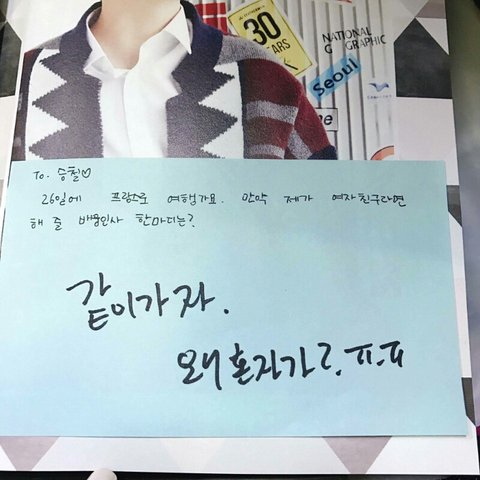 30
YEARS
NATIONAL
GEOGRAPHIC
Seoul
To. 승철♡
26일에 프랑스로 여행가요. 만약 제가 여자친구라면
해 줄 배웅인사 한마디는?
같이가자.
왜 혼자가?. ㅠ.ㅠ